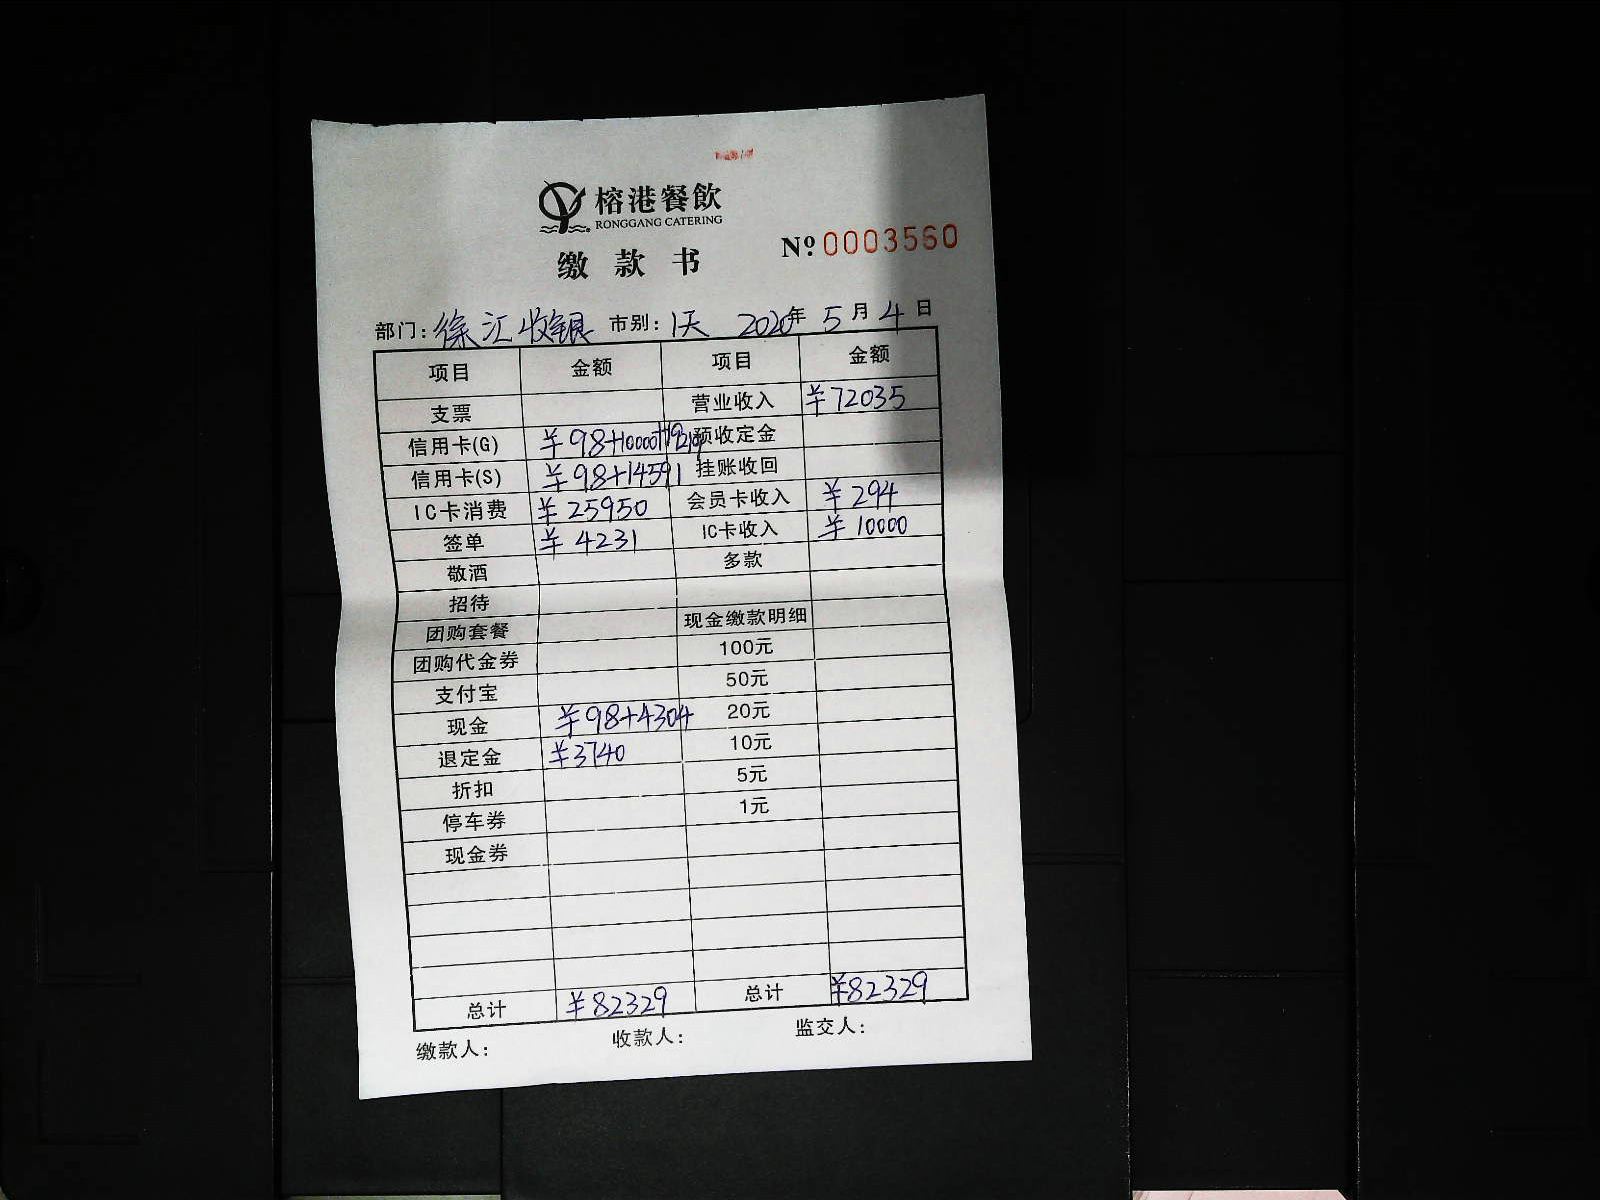 榕港餐飲
RONGGANG CATERING
缴款书
Nº 0003560
部门: 徐汇收银 市别: 1天 2020年 5月 4日
项目 金额 项目 金额
支票 营业收入 ¥72035
信用卡(G) ¥98+10000+19219 预收定金
信用卡(S) ¥98+14591 挂账收回
IC卡消费 ¥25950 会员卡收入 ¥294
签单 ¥4231 IC卡收入 ¥10000
敬酒 多款
招待
团购套餐 现金缴款明细
团购代金券 100元
支付宝 50元
现金 ¥98+4304 20元
退定金 ¥3740 10元
折扣 5元
停车券 1元
现金券
总计 ¥82329 总计 ¥82329
缴款人: 收款人: 监交人: